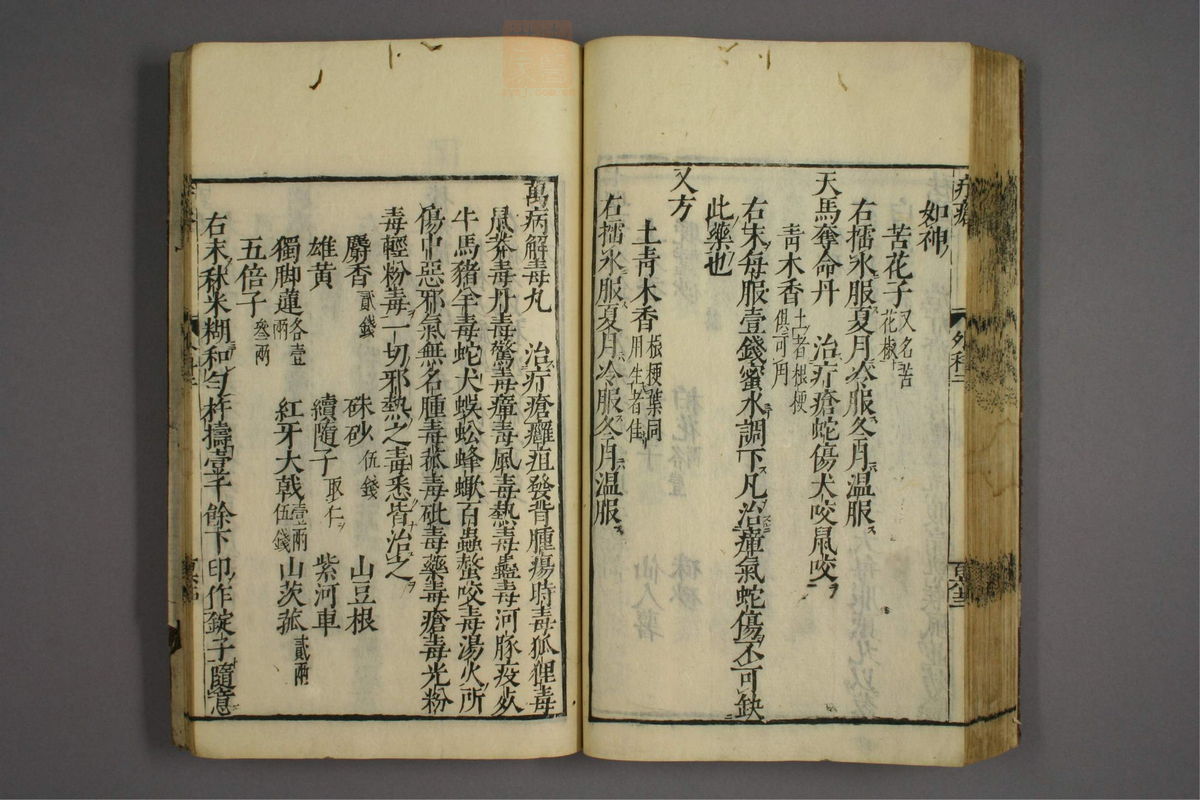 如神
苦花子 又名苦花椒
右擂水服夏月冷服冬月温服
天馬奪命丹 治疔瘡蛇傷犬咬鼠咬
青木香 土者根梗俱可用
右末每服壹錢蜜水調下凡治瘴氣蛇傷不可缺
此藥也
又方
土青木香 根梗葉同用生者佳
右擂水服夏月冷服冬月温服
萬病解毒丸 治疔瘡癰疽發背腫瘍時毒狐狸毒
鼠莽毒丹毒驚毒瘴毒風毒熱毒蠱毒河豚疫死
牛馬豬羊毒蛇犬蜈蚣蜂蠍百蟲螫咬毒湯火所
傷中惡邪氣無名腫毒菰毒砒毒藥毒瘡毒光粉
毒輕粉毒一切邪熱之毒悉皆治之
麝香 貳錢 硃砂 伍錢 山豆根
雄黄 續隨子 取仁 紫河車
獨脚蓮 各壹兩 紅牙大戟 壹兩伍錢 山茨菰 貳兩
五倍子 叁兩
右末秫米糊和勻杵擣壹千餘下印作錠子隨意
外科二